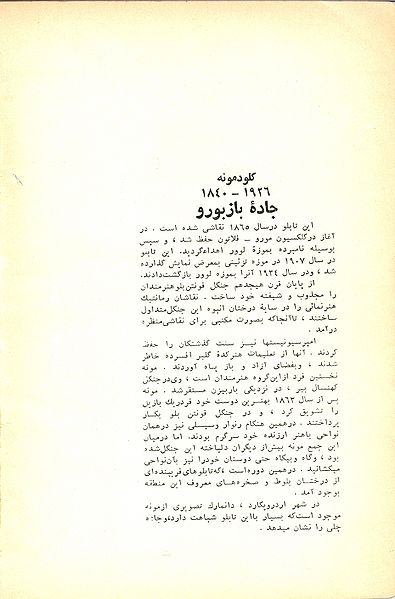 کلودمونه
۱۹۲۶ - ۱۸۴۰
جادهٔ بازبورو
این تابلو درسال ۱۸۶۵ نقاشی شده است . در
آغاز درکلکسیون مورو - فلاتون حفظ شد ، و سپس
بوسیله نامبرده بموزهٔ لوور اهداءگردید. این تابلو
در سال ۱۹۰۷ در موزه تزئینی بمعرض نمایش گذارده
شد ، ودر سال ۱۹۳۴ آنرا بموزه لوور بازگشت‌دادند.
از پایان قرن هیجدهم جنگل فونتن‌بلوهنرمندان
را مجذوب و شیفته خود ساخت . نقاشان رمانتیک
هنرنمائی را در سایهٔ درختان انبوه این جنگل‌متداول
ساختند ، تاآنجاکه بصورت مکتبی برای نقاشی‌منظره
درآمد .
امپرسیونیستها نیز سنت گذشتگان را حفظ
کردند . آنها از تعلیمات هنرکدهٔ گلیر افسرده خاطر
شدند ، وبفضای آزاد و باز پناه آوردند . مونه
نخستین فرد ازاین‌گروه هنرمندان است ، وی‌درجنگل
کهنسال بیر ، در نزدیکی باربیزن مستقرشد . مونه
پس از سال ۱۸۶۳ بهترین دوست خود فردریك بازیل
را تشویق کرد ، و در جنگل فونتن بلو بکار
پرداختند . درهمین هنگام رنوار وسیسلی نیز درهمان
نواحی باهنر ارزنده خود سرگرم بودند. اما درمیان
این جمع مونه بیش‌از دیگران دلباخته این جنگل‌شده
بود ، وگاه وبیگاه حتی دوستان خودرا نیز بآن‌نواحی
میکشانید . درهمین دوره‌است ،که‌تابلوهای‌فریبنده‌ای
از درختان بلوط و صخره‌های معروف این منطقه
بوجود آمد .
در شهر اردروپگارد ، دانمارك تصویری ازمونه
موجود است‌که بسیار بااین تابلو شباهت دارد،وجاده
چلی را نشان میدهد .